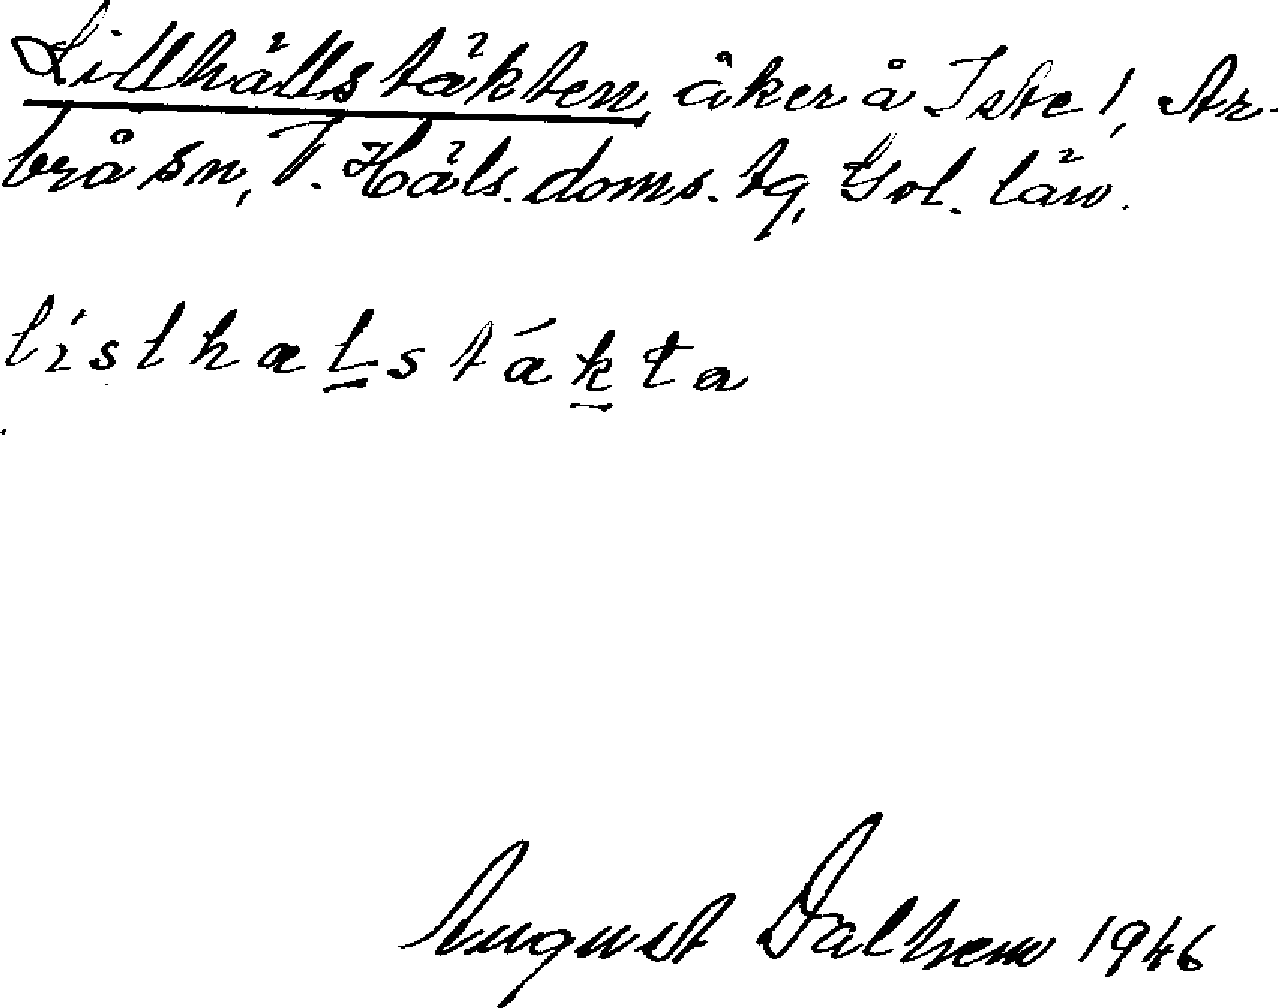 Lillhällstäkten, åker å Iste 1, Ar-
brå sn, V. Häls. doms. tg, Gvl. län.
lislhaḻstáḵta
August Dalhem 1946